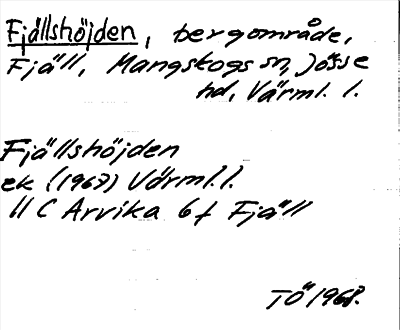 Fjällshöjden, bergområde,
Fjäll, Mangskogs sn, Jösse
hd, Värml. l.
Fjällshöjden
ek (1967) Värml.l.
11 C Arvika 6 f Fjäll
TÖ 1968.